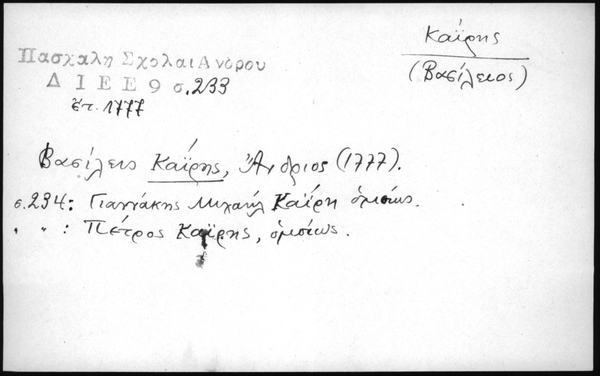 Καΐρης
(Βασίλειος)
Πασχαλη Σχολαι Ανδρου
Δ Ι Ε Ε 9 σ.233
ἔτ. 1777
Βασίλειος Καΐρης, Ἄνδριος (1777).
σ.234: Γιαννάκης Μιχαήλ Καΐρη ὁμοίως.
" " : Πέτρος Καΐρης, ὁμοίως.